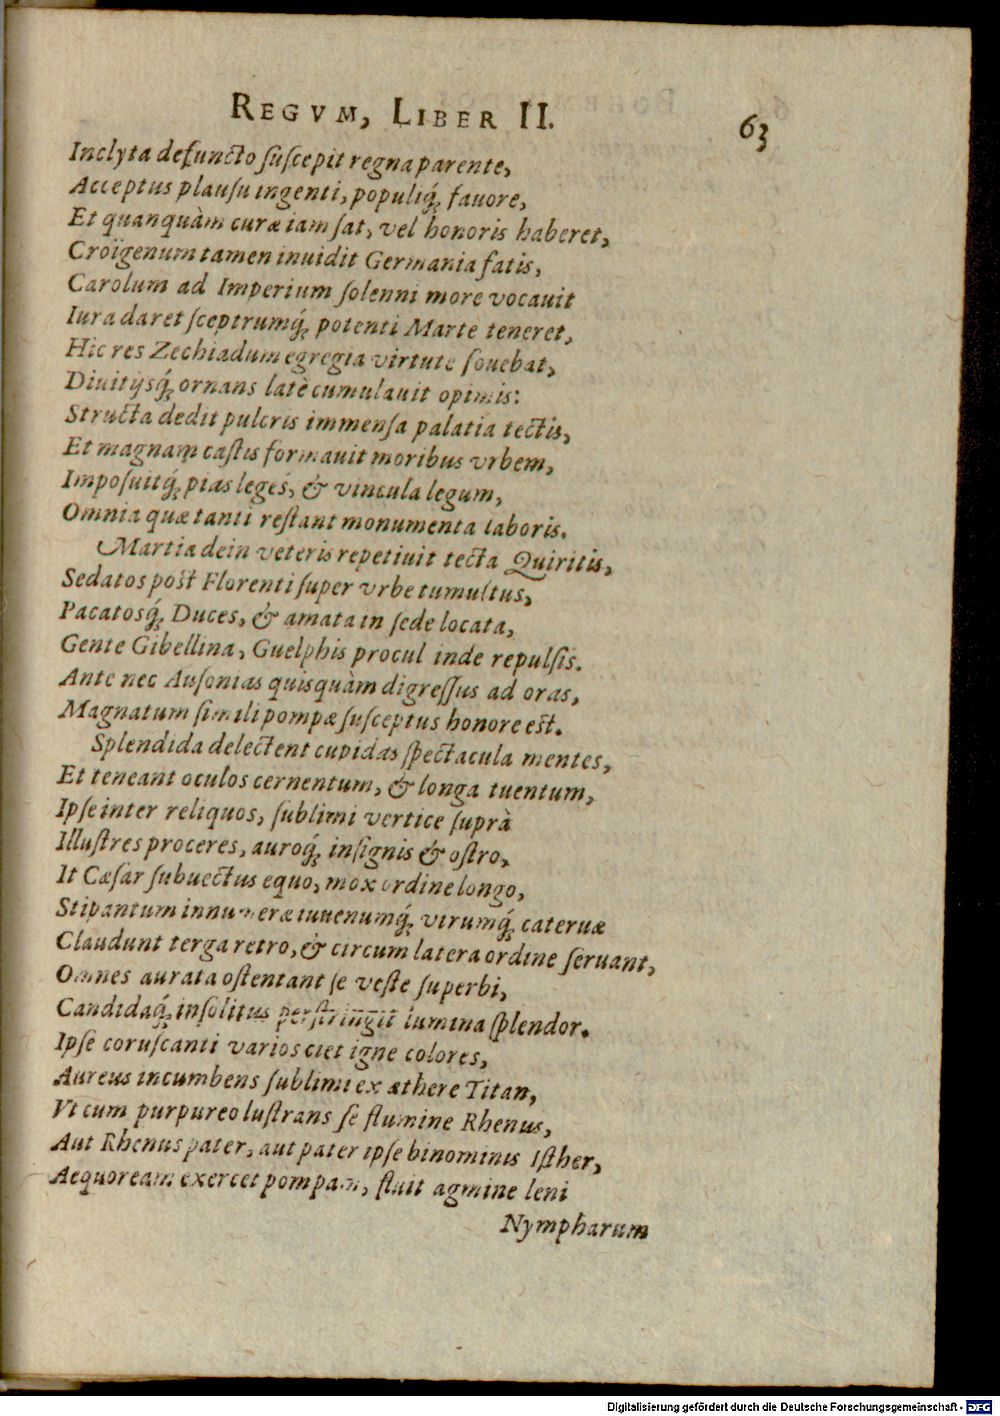 REGVM, LIBER II. 63
Inclyta defuncto ſuſcepit regna parente,
Acceptus plauſu ingenti, populiq́; fauore,
Et quanquàm curæ iam ſat, vel honoris haberet,
Croïgenum tamen inuidit Germania fatis,
Carolum ad Imperium ſolenni more vocauit
Iura daret ſceptrumq́; potenti Marte teneret,
Hic res Zechiadum egregia virtute fouebat,
Diuitijsq́; ornans latè cumulauit opimis:
Structa dedit pulcris immenſa palatia tectis,
Et magnam caſtis formauit moribus vrbem,
Impoſuitq́; pias leges, & vincula legum,
Omnia quæ tanti reſtant monumenta laboris.
Martia dein veteris repetiuit tecta Quiritis,
Sedatos poſt Florenti ſuper vrbe tumultus,
Pacatosq́; Duces, & amata in ſede locata,
Gente Gibellina, Guelphis procul inde repulſis.
Ante nec Auſonias quisquàm digreſſus ad oras,
Magnatum ſimili pompæ ſuſceptus honore eſt.
Splendida delectent cupidas ſpectacula mentes,
Et teneant oculos cernentum, & longa tuentum,
Ipſe inter reliquos, ſublimi vertice ſuprà
Illuſtres proceres, auroq́; inſignis & oſtro,
It Cæſar ſubuectus equo, mox ordine longo,
Stipantum innumeræ iuuenumq́; virumq́; cateruæ
Claudunt terga retro, & circum latera ordine ſeruant,
Omnes aurata oſtentant ſe veſte ſuperbi,
Candidaq́; inſolitus perſtringit lumina ſplendor.
Ipſe coruſcanti varios ciet igne colores,
Aureus incumbens ſublimi ex æthere Titan,
Vt cum purpureo luſtrans ſe flumine Rhenus,
Aut Rhenus pater, aut pater ipſe binominis Iſther,
Aequoream exercet pompam, fluit agmine leni
Nympharum
Digitalisierung gefördert durch die Deutsche Forschungsgemeinschaft - DFG